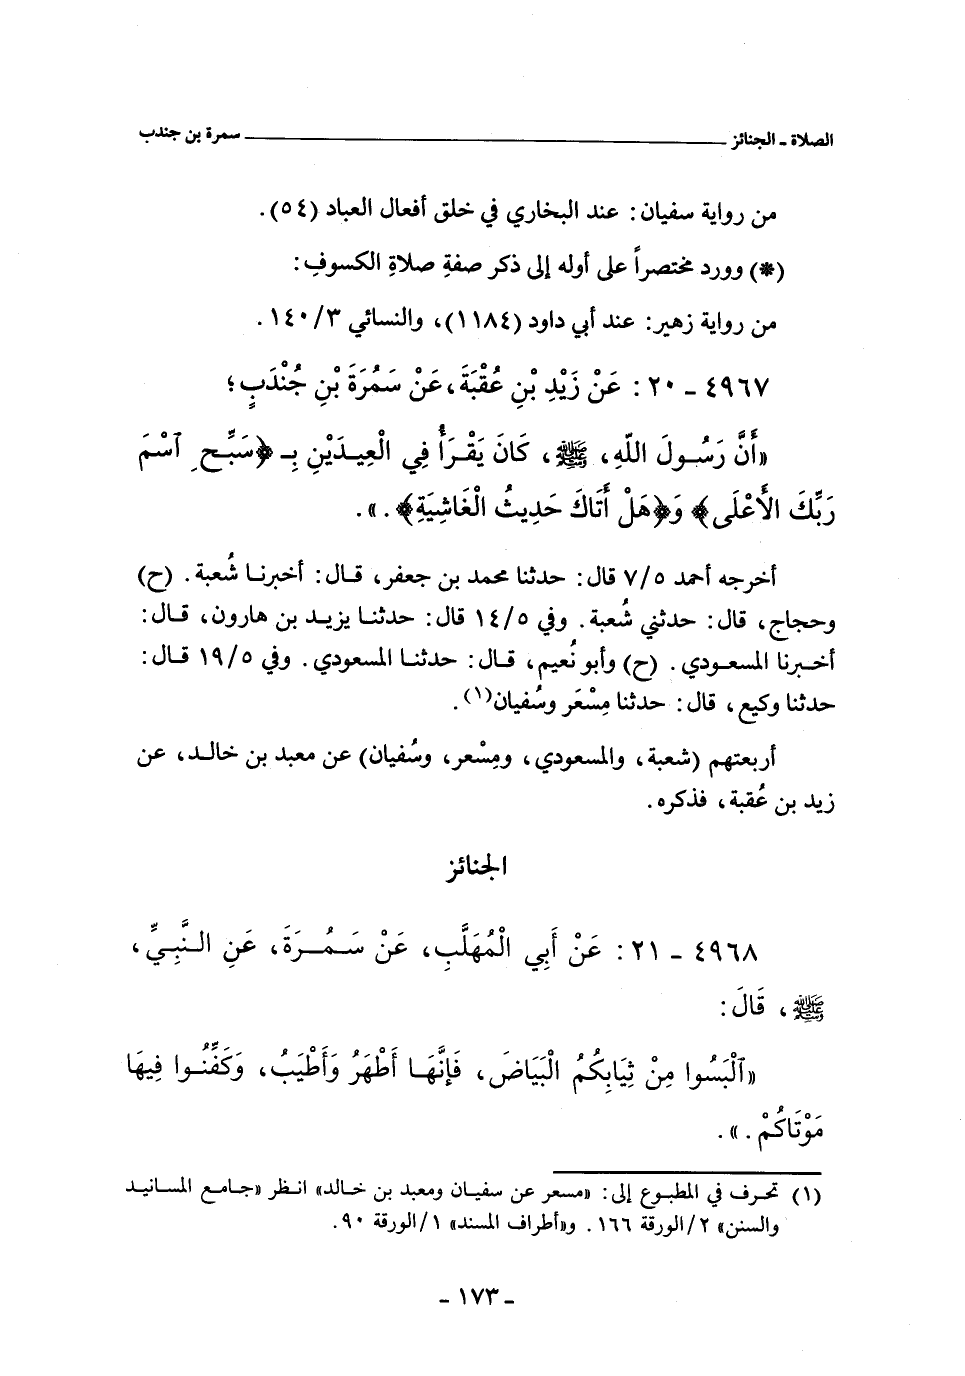 الصلاة - الجنائز ــــــــــ سمرة بن جندب
من رواية سفيان: عند البخاري في خلق أفعال العباد (٥٤).
(*) وورد مختصراً على أوله إلى ذكر صفةِ صلاةِ الكسوفِ:
من رواية زهير: عند أبي داود (١١٨٤)، والنسائي ٣/١٤٠.
٤٩٦٧ - ٢٠: عَنْ زَيْدِ بْنِ عُقْبَةَ، عَنْ سَمُرَةَ بْنِ جُنْدَبٍ؛
«أَنَّ رَسُولَ اللّهِ، ﷺ، كَانَ يَقْرَأُ فِي الْعِيدَيْنِ بِـ ﴿سَبِّحِ ٱسْمَ
رَبِّكَ الأَعْلَى﴾ وَ﴿هَلْ أَتَاكَ حَدِيثُ الْغَاشِيَةِ﴾.».
أخرجه أحمد ٥/٧ قال: حدثنا محمد بن جعفر، قال: أخبرنا شُعبة. (ح)
وحجاج، قال: حدثني شُعبة. وفي ٥/١٤ قال: حدثنا يزيد بن هارون، قال:
أخبرنا المسعودي. (ح) وأبو نُعيم، قال: حدثنا المسعودي. وفي ٥/١٩ قال:
حدثنا وكيع، قال: حدثنا مِسْعَر وسُفيان(١).
أربعتهم (شعبة، والمسعودي، ومِسْعر، وسُفيان) عن معبد بن خالد، عن
زيد بن عُقبة، فذكره.
الجنائز
٤٩٦٨ - ٢١: عَنْ أَبِي الْمُهَلَّبِ، عَنْ سَمُرَةَ، عَنِ النَّبِيِّ،
ﷺ، قَالَ:
«ٱلْبَسُوا مِنْ ثِيَابِكُمُ الْبَيَاضَ، فَإِنَّهَا أَطْهَرُ وَأَطْيَبُ، وَكَفِّنُوا فِيهَا
مَوْتَاكُمْ.».
(١) تحرف في المطبوع إلى: «مسعر عن سفيان ومعبد بن خالد» انظر «جامع المسانيد
والسنن» ٢/الورقة ١٦٦. و«أطراف المسند» ١/الورقة ٩٠.
- ١٧٣ -